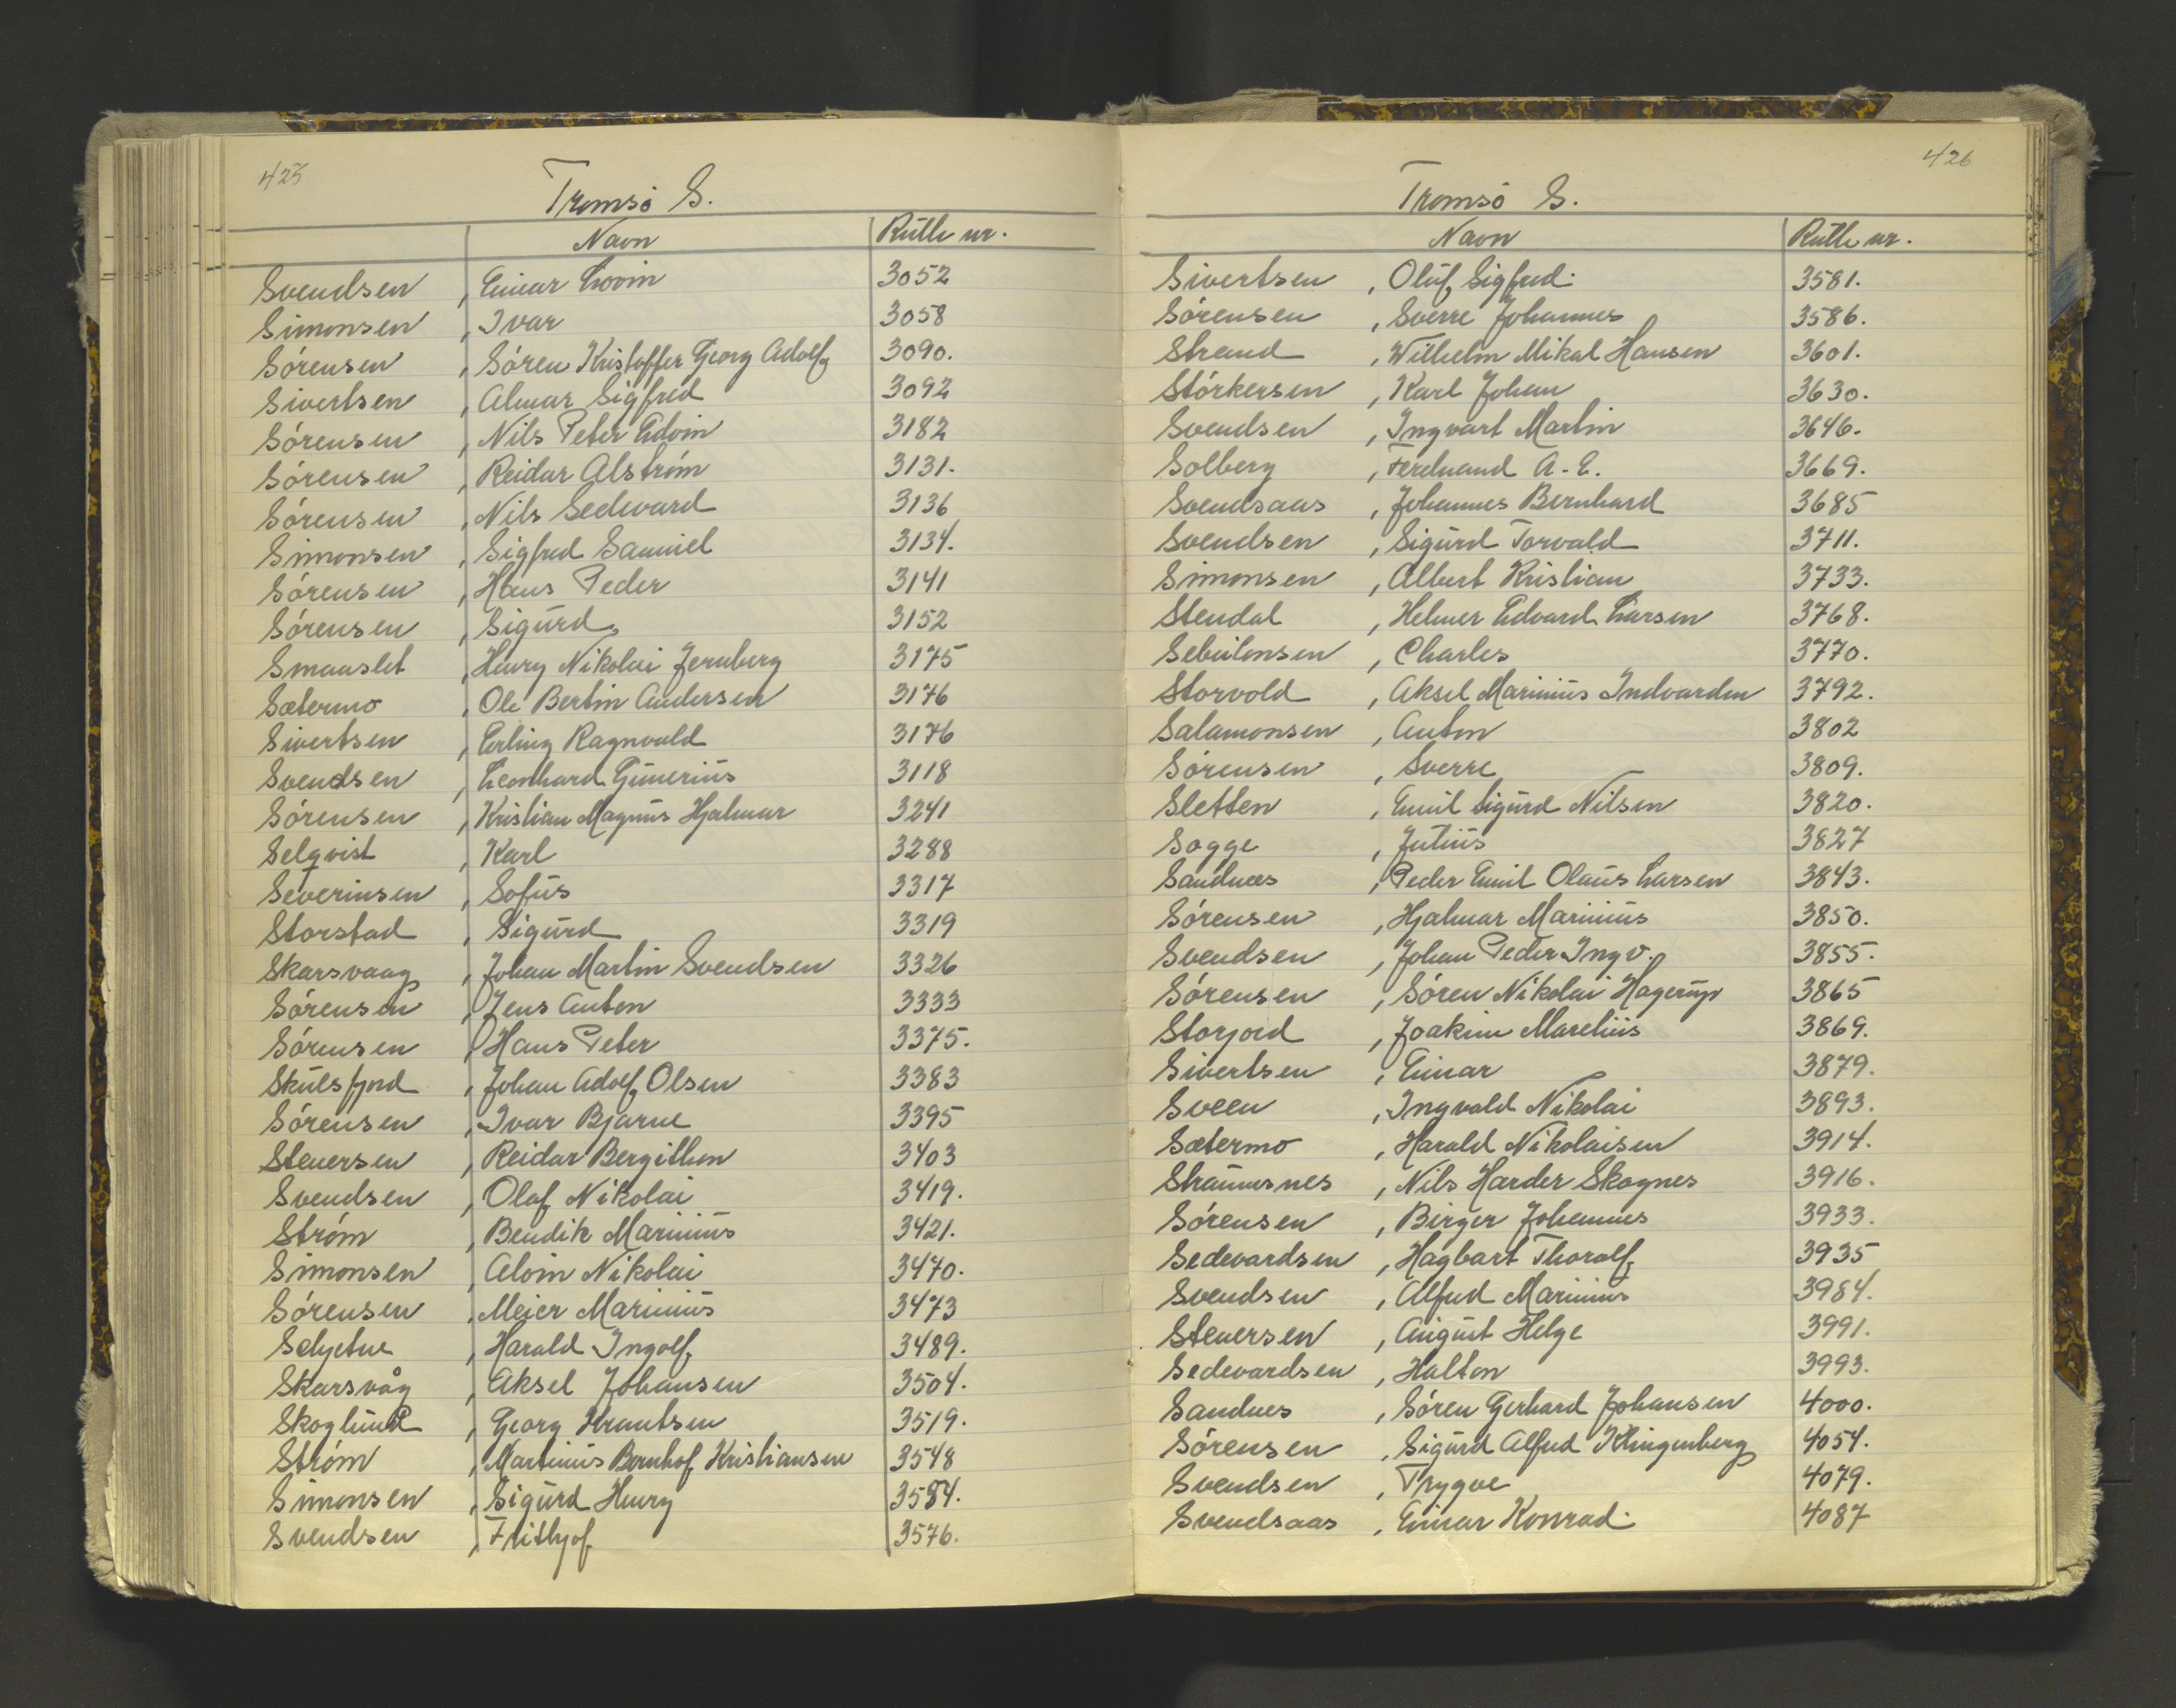 425
Tromsö S.
Navn Rulle nr.
Svendsen, Einar Lovin 3052
Simonsen, Ivar 3058
Sörensen, Sören Kristoffer Georg Adolf 3090.
Sivertsen, Almar Sigfred 3092
Sörensen, Nils Peter Edvin 3182
Sörensen, Reidar Alström 3131.
Sörensen, Nils Sedevard 3136
Simonsen, Sigfred Samuel 3134.
Sörensen, Hans Peder 3141
Sörensen, Sigurd 3152
Smaaslet, Henry Nikolai Jernberg 3175
Sætermo, Ole Bertin Andersen 3176
Sivertsen, Erling Ragnvald 3176
Svendsen, Leonhard Gunerius 3118
Sörensen, Kristian Magnus Hjalmar 3241
Selqvist, Karl 3288
Severinsen, Sofus 3317
Storstad, Sigurd 3319
Skarsvaag, Johan Martin Svendsen 3326
Sörensen, Jens Anton 3333
Sörensen, Hans Peter 3375.
Skulsfjord, Johan Adolf Olsen 3383
Sörensen, Ivar Bjarne 3395
Stenersen, Reidar Bergithon 3403
Svendsen, Olaf Nikolai 3419.
Ström, Bendik Marinius 3421.
Simonsen, Alvin Nikolai 3470.
Sörensen, Meier Marinius 3473
Seljetue, Harald Ingolf 3489.
Skarsvåg, Aksel Johansen 3504.
Skoglund, Georg Krantsen 3519.
Ström, Martinus Bernhof Kristiansen 3548
Simonsen, Sigurd Henry
Svendsen, Frithjof 3576.
426
Tromsö S.
Navn Rulle nr.
Sivertsen, Oluf Sigfred. 3581.
Sörensen, Sverre Johannes 3586.
Strand, Wilhelm Mikal Hansen 3601.
Störkersen, Karl Johan 3630.
Svendsen, Ingvart Martin 3646.
Solberg, Ferdinand A. E. 3669.
Svendsaas, Johannes Bernhard 3685
Svendsen, Sigurd Torvald 3711.
Simonsen, Albert Kristian 3733.
Stendal, Helmer Edvard Larsen 3768.
Sebulonsen, Charles 3770.
Storvold, Aksel Marinius Indvarden 3792.
Salamonsen, Anton 3802
Sörensen, Sverre 3809.
Sletten, Emil Sigurd Nilsen 3820.
Sogge, Julius 3827
Sandnes, Peder Emil Olaus Larsen 3843.
Sörensen, Hjalmar Marinius 3850.
Svendsen, Johan Peder Ingv. 3855.
Sörensen, Sören Nikolai Hagerup 3865
Storjord, Joakim Marelius 3869.
Sivertsen, Einar 3879.
Sveen, Ingvald Nikolai 3893.
Sætermo, Harald Nikolaisen 3914.
Straumsnes, Nils Harder Skognes 3916.
Sörensen, Birger Johannes 3933.
Sedevardsen, Hagbart Thoralf 3935
Svendsen, Alfred Marinius 3984.
Stenersen, August Helge 3991.
Sedevardsen, Halton 3993.
Sandnes, Sören Gerhard Johansen 4000.
Sörensen, Sigurd Alfred Klingenberg 4054.
Svendsen, Trygve 4079.
Svendsaas, Einar Konrad. 4087